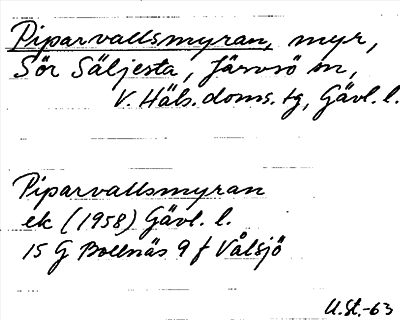 Piparvallsmyran, myr,
Sör Säljesta, Järvsö sn,
V. Häls. doms. tg, Gävl. l.
Piparvallsmyran
ek (1958) Gävl. l.
15 G Bollnäs 9 f Vålsjö
U.St.-63